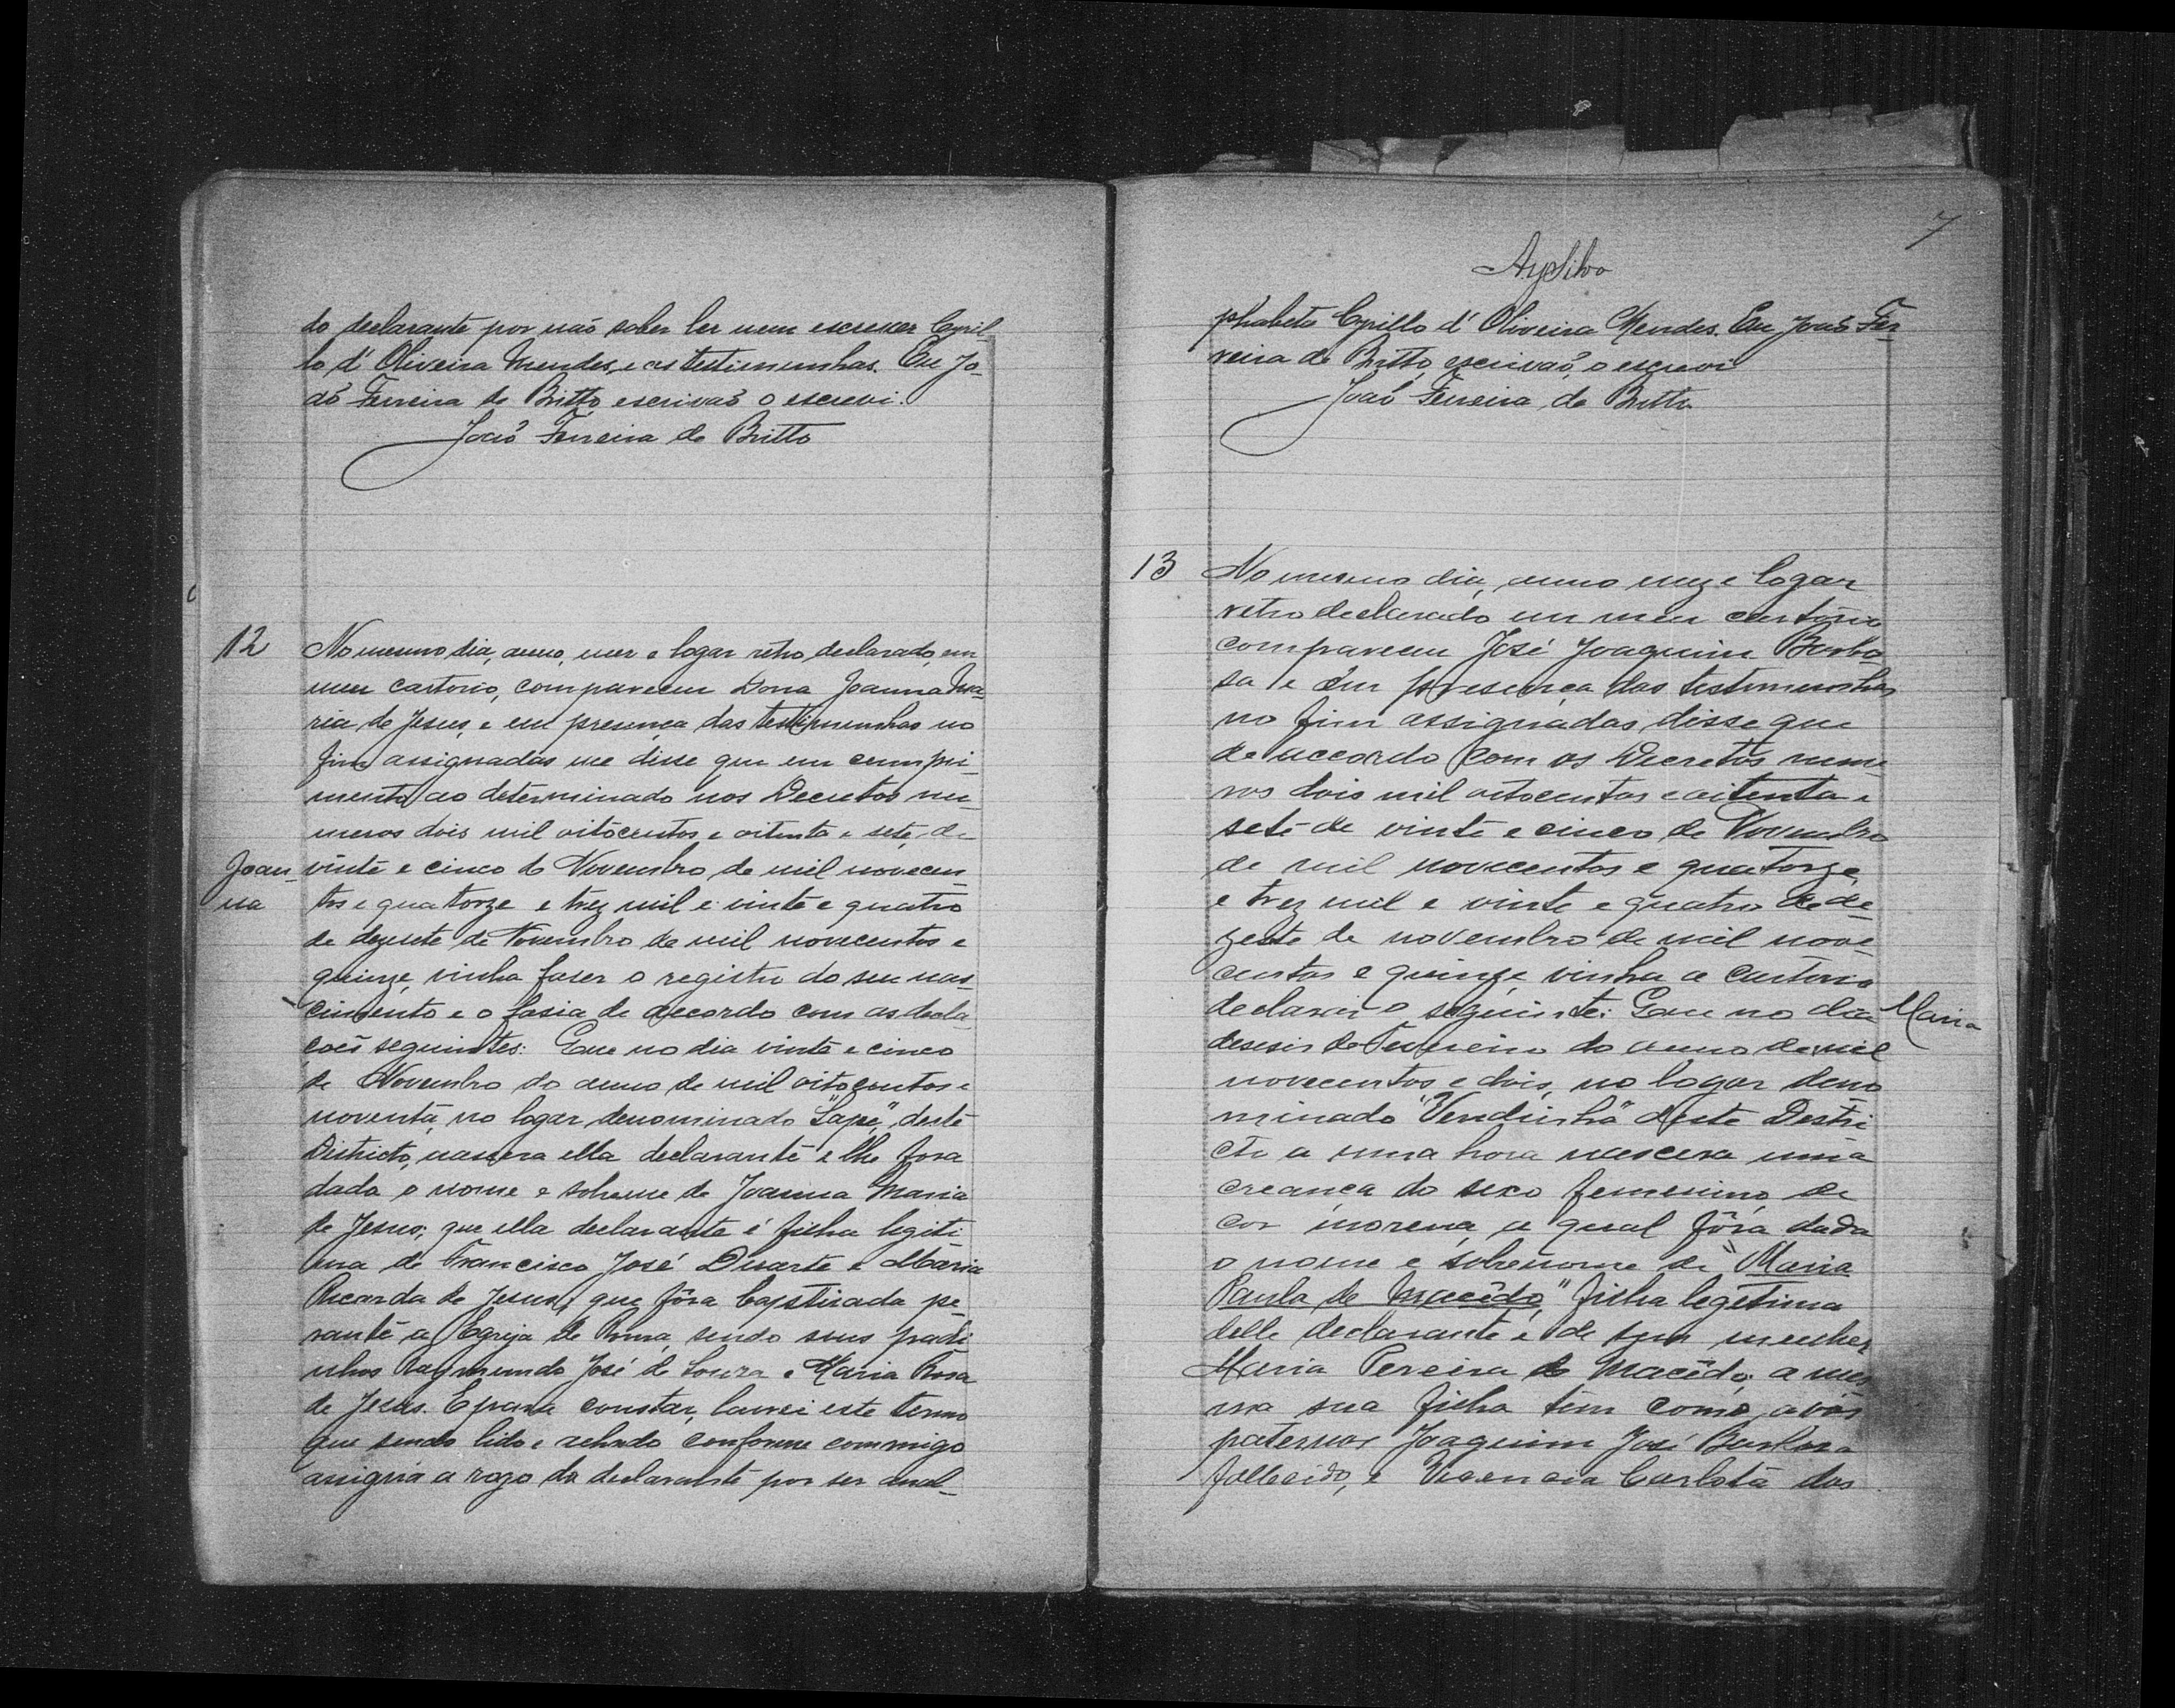 do declarante por não saber ler nem escrever Cyril-
lo d'Oliveira Mendes, e as testimunhas. Eu Jo-
ão Ferreira de Britto escrivão o escrevi.
João Ferreira de Britto
12
No mesmo dia, anno, mez e logar retro declarado, em
meu cartorio, compareceu Dona Joanna Ma-
ria de Jesus, e em presença das testimunhas no
fim assignadas me disse que em cumpri-
mento ao determinado nos Decretos nu-
meros dois mil oitocentos e oitenta e sete, de
Joan-
na
vinte e cinco de Novembro de mil novecen-
tos e quatorze e trez mil e vinte e quatro
de dezesete de Novembro de mil novecentos e
quinze, vinha faser o registro do seu nas-
cimento e o fasia de accordo com as decla-
ções seguintes: Que no dia vinte e cinco
de Novembro do anno de mil oitocentos e
noventa, no logar denominado "Sapé", deste
Districto, nascera ella declarante e lhe fora
dada o nome e sobreme de Joanna Maria
de Jesus; que ella declarante é filha legiti
ma de Francisco José Duarte e Maria
Ricarda de Jesus; que fôra baptisada pe-
rante a Egreja de sendo seus padri
nhos Raymundo José de Souza e Maria Rosa
de Jesus. E para constar, lavrei este termo
que sendo lido e achado conforme commigo
assigna a rogo da declarante por ser anal-
7
AySilva
phabeta Cyrillo d'Oliveira Mendes. Eu João Fer-
reira de Britto, escrivão, o escrevi
João Ferreira de Britto
13
No mesmo dia, anno mez e logar
retro declarado em meu cartorio
compareceu José Joaquim Barbo-
sa e em presença das testimunhas
no fim assignadas, disse que
de accordo com os Decretos nume-
ros dois mil oitocentos e oitenta e
sete de vinte e cinco de Novembro
de mil novecentos e quatorze,
e trez mil e vinte e quatro de de-
zesete de novembro de mil nove-
centos e quinze, vinha a cartorio
declarar o seguinte: Que no dia
Maria
desesis de Fevereiro do anno de mil
novecentos e dois, no logar deno
minado "Vendinha" deste Destri
cto a uma hora nascera uma
creança do sexo femenino, de
cor morena, a qual fôra dada
o nome e sobrenome de "Maria
Paula de Macêdo," filha legitima
delle declarante e de sua mulher
Maria Pereira de Macêdo; a mes
ma sua filha têm como avós
paternos Joaquim José Barbosa
fallecido, e Vicencia Carlota dos